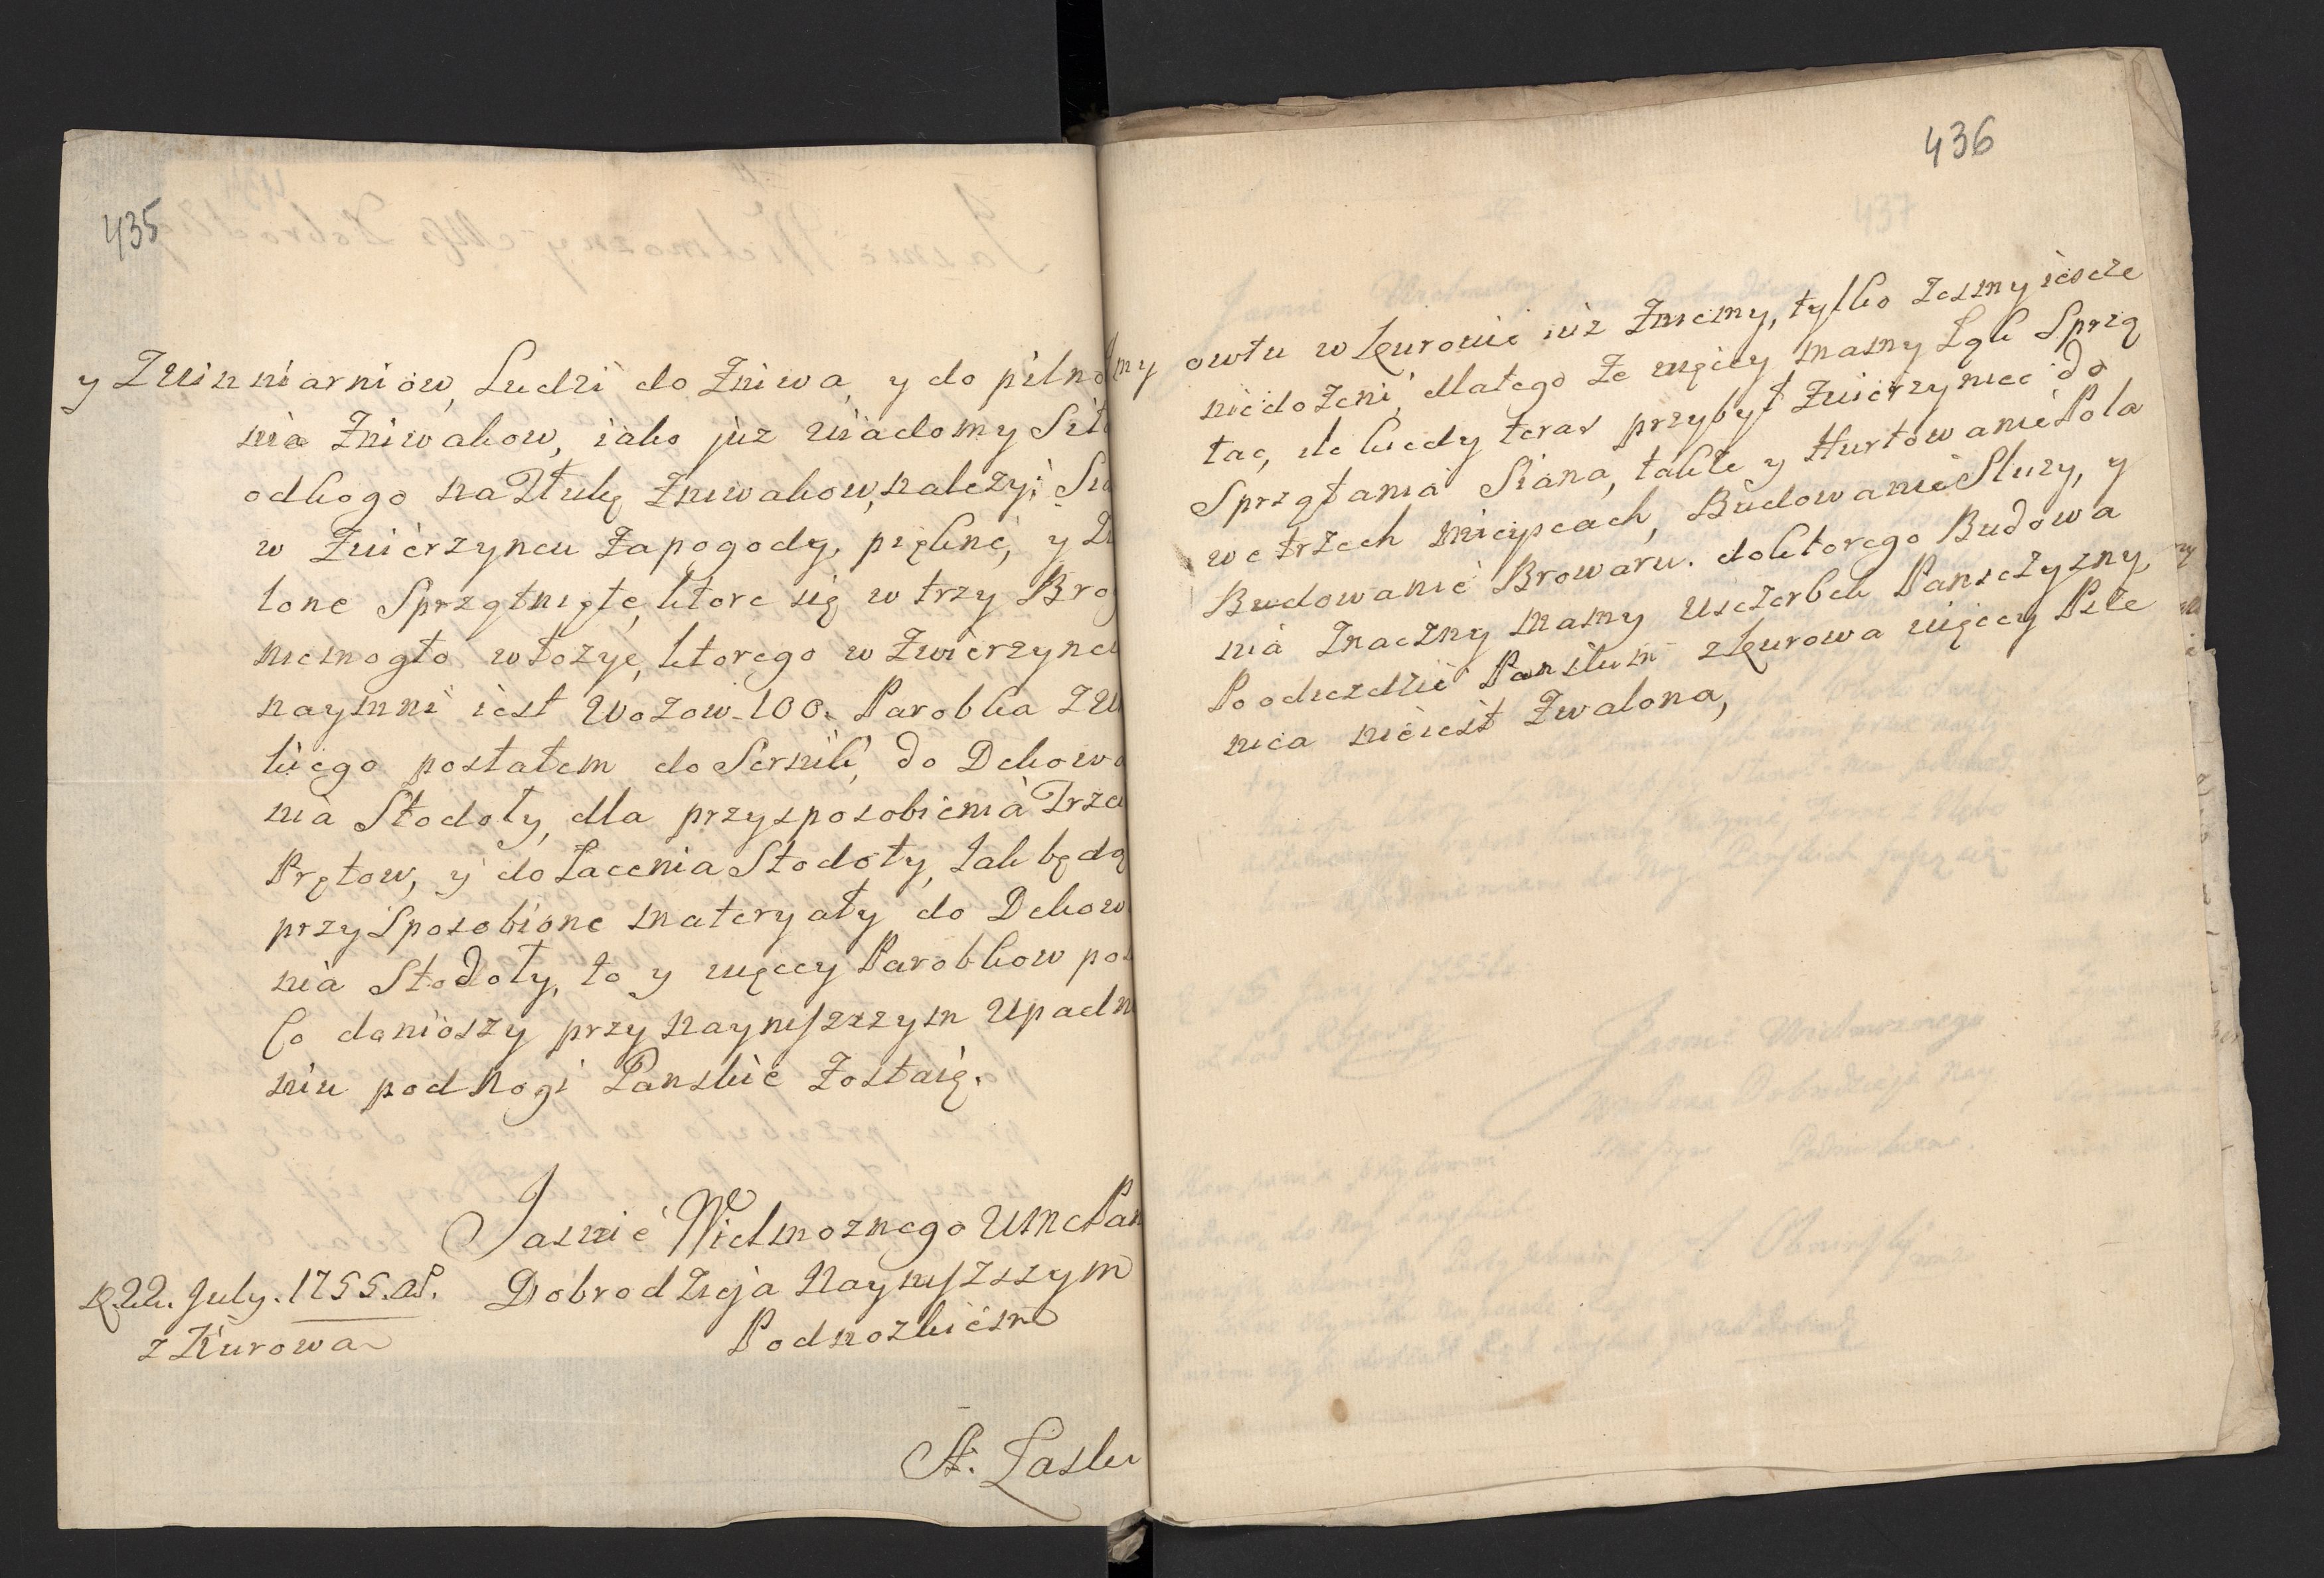 435
y Zwinniarniów, Ludzi do Zniwa, y do pilno
nia Zniwakow, iako juz wiadomy
odkogo na Sztukę Zniwakow, nalezy;
w Zwierzyncu Zapogody, pięknè, y
tone Sprzątnięte, ktore się w trzy Bro
niemogło włozyć, ktorego w Zwierzyncu
naymni iest Wozow 100. Parobka
kiego posłałem do Sernik, do Dekowa
nia Stodoły, dla przysposobienia Trzci
Prętow, y do Łacenia Stodoły, Jak będą
przySposobione materyały do Dekow
nia Stodoły, to y więcy Parobkow
Co doniosszy przy naynisszzym Upadn
niu pod Nogi Panskie Zostaię.
Jasnie Wielmoznego Pan
Dobrodzieja Nayniszszym
Podnozkiem
22. July. 1755.
z Kurowa
A. Lasku
436
owtu w Kurowie iuz Zniemy, tylko Zesmy iescze
niedozeni, dlatego Ze więcy mamy Łąk Sprzą
tac, ile kiedy teras przybył Zwierzyniec do
Sprzątania Siana, takze y Hurtowanie Pola
we trzech mieyscach, Budowanie Sluzy, y
Budowanié Browaru. doktorego Budowa
nia Znaczny mamy Usczerbek Pansczyzny
Po odiezdzie Panskim z Kurowa więcy Psze
nica nieiest Zwalona,